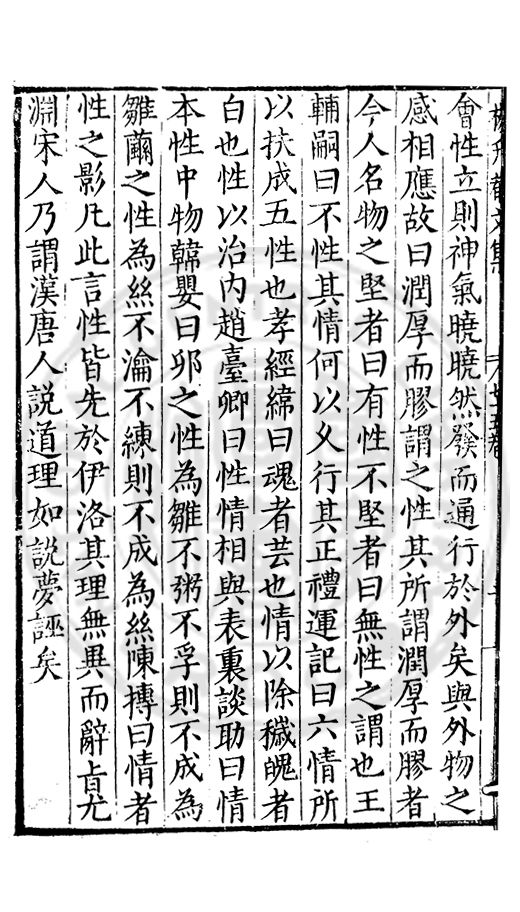 會性立則神氣曉曉然發而通行於外矣與外物之
感相應故曰潤厚而膠謂之性其所謂潤厚而膠者
今人名物之堅者曰有性不堅者曰無性之謂也王
輔嗣曰不性其情何以久行其正禮運記曰六情所
以扶成五性也孝經緯曰魂者芸也情以除穢魄者
白也性以治內趙臺卿曰性情相與表裏談助曰情
本性中物韓嬰曰卵之性為雛不粥不孚則不成為
雛繭之性為絲不瀹不練則不成為絲陳摶曰情者
性之影凡此言性皆先於伊洛其理無異而辭旨尤
淵宋人乃謂漢唐人說道理如說夢誣矣